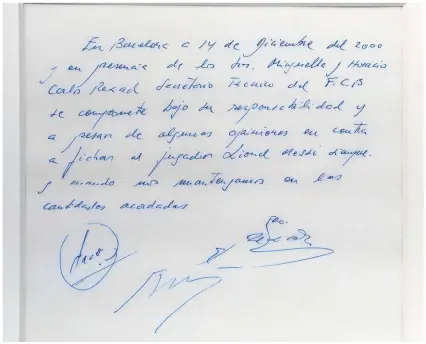 En Barcelona a 14 de Diciembre del 2000
y en presencia de los Srs. Minguella y Horacio
Carlos Rexach Secretario Técnico del F.C.B
se compromete bajo su responsabilidad y
a pesar de algunas opiniones en contra
a fichar al jugador Lionel Messi
y cuando nos mantengamos en las
cantidades acordadas